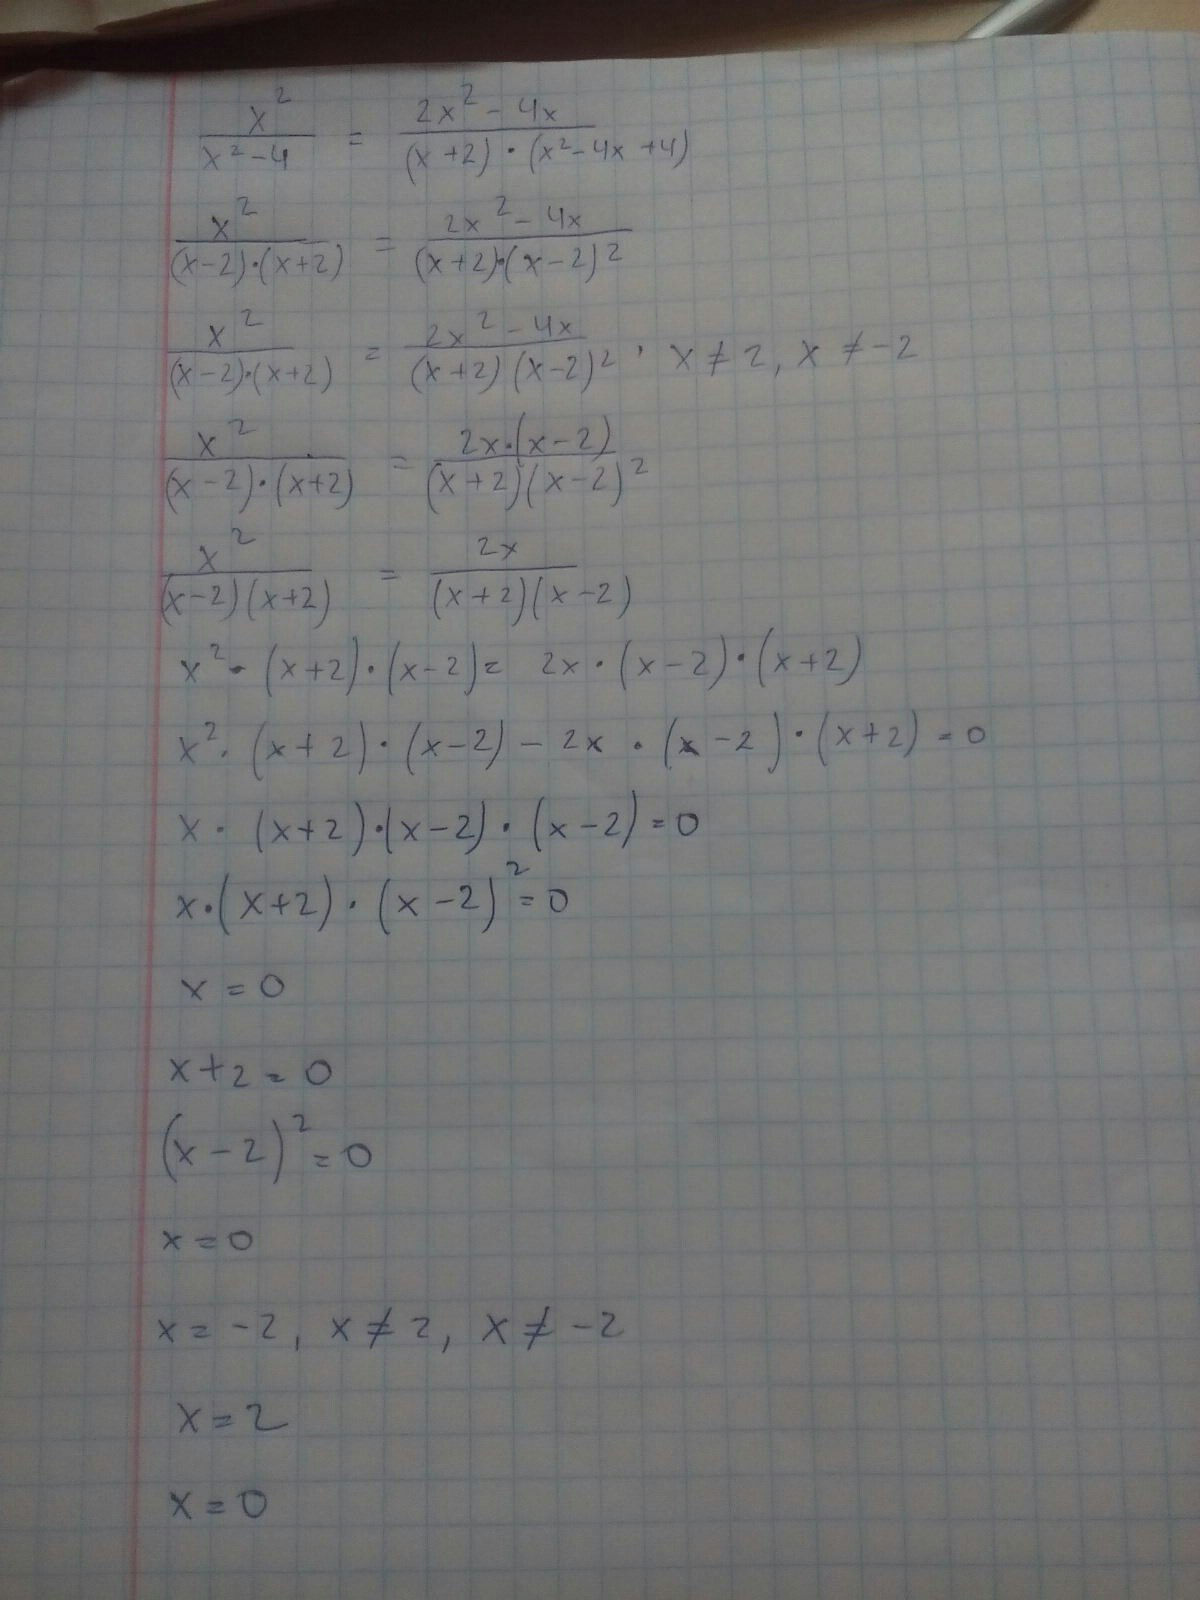 x² / (x² - 4) = (2x² - 4x) / ((x + 2) · (x² - 4x + 4))
x² / ((x - 2) · (x + 2)) = (2x² - 4x) / ((x + 2) · (x - 2)²)
x² / ((x - 2) · (x + 2)) = (2x² - 4x) / ((x + 2) (x - 2)²) , x ≠ 2, x ≠ -2
x² / ((x - 2) · (x + 2)) = 2x · (x - 2) / ((x + 2) (x - 2)²)
x² / ((x - 2) (x + 2)) = 2x / ((x + 2) (x - 2))
x² · (x + 2) · (x - 2) = 2x · (x - 2) · (x + 2)
x² · (x + 2) · (x - 2) - 2x · (x - 2) · (x + 2) = 0
x · (x + 2) · (x - 2) · (x - 2) = 0
x · (x + 2) · (x - 2)² = 0
x = 0
x + 2 = 0
(x - 2)² = 0
x = 0
x = -2, x ≠ 2, x ≠ -2
x = 2
x = 0